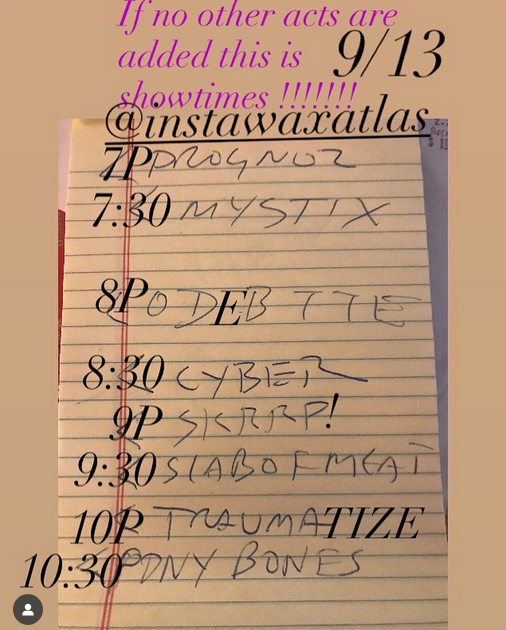 If no other acts are
added this is
showtimes !!!!!!!
9/13
@instawaxatlas
7P PROGNOZ
7:30 MYSTIX
8P
8:30 CYBER
9P SKRRP!
9:30 SLAB OF MEAT
10P TRAUMATIZE
10:30 BONES